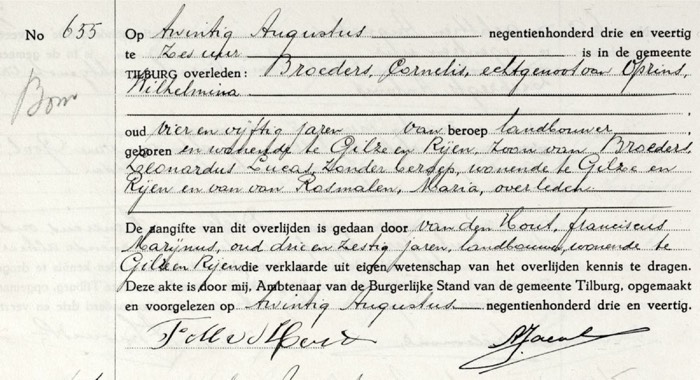 No 655 Op twintig Augustus negentienhonderd drie en veertig
te zes uur is in de gemeente
TILBURG overleden: Broeders, Cornelis, echtgenoot van Oprins,
Wilhelmina
oud vier en vijftig jaren van beroep landbouwer
geboren en wonende te Gilze en Rijen, zoon van Broeders,
Leonardus Lucas, zonder beroep, wonende te Gilze en
Rijen en van van Rosmalen, Maria, overleden.
De aangifte van dit overlijden is gedaan door van den Hout, Franciscus
Marijnus, oud drie en zestig jaren, landbouwer, wonende te
Gilze en Rijen die verklaarde uit eigen wetenschap van het overlijden kennis te dragen.
Deze akte is door mij, Ambtenaar van de Burgerlijke Stand van de gemeente Tilburg, opgemaakt
en voorgelezen op twintig Augustus negentienhonderd drie en veertig.